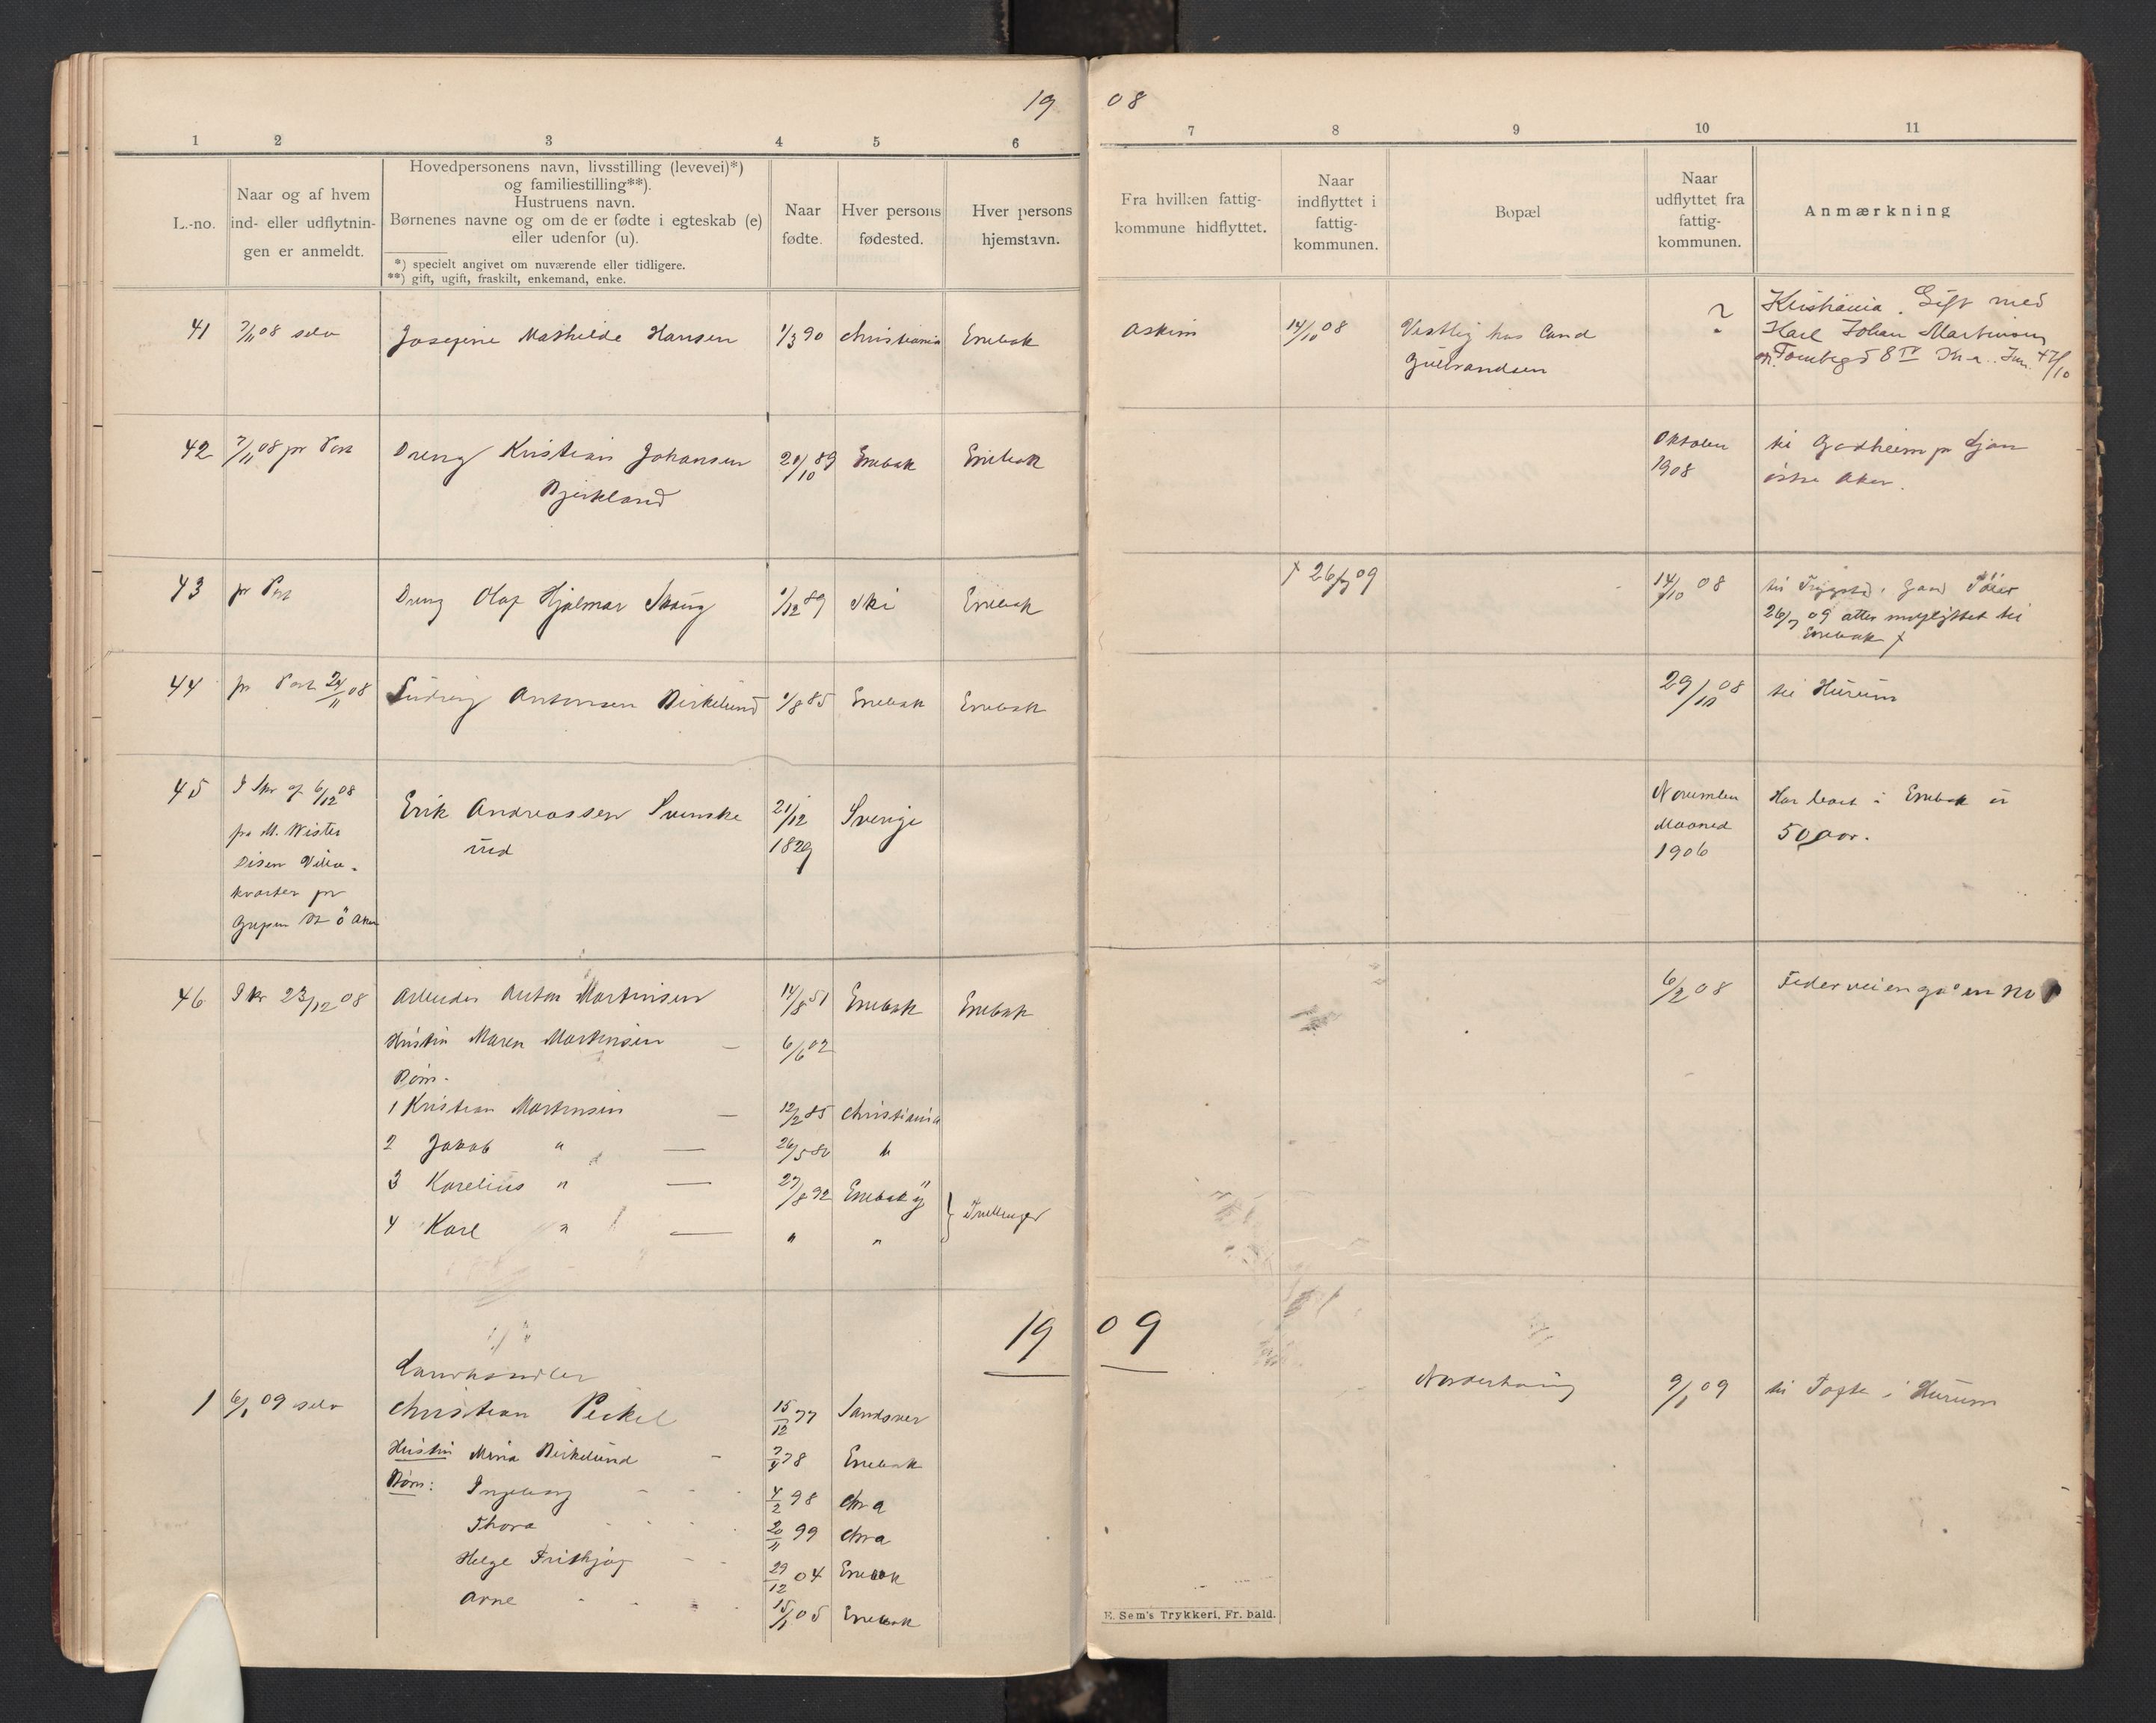 19 08
1 2 3 4 5 6 7 8 9 10 11
L.-no.
Naar og af hvem
ind- eller udflytnin-
gen er anmeldt.
Hovedpersonens navn, livsstilling (levevei)*)
og familiestilling**).
Hustruens navn.
Børnenes navne og om de er fødte i egteskab (e)
eller udenfor (u).
*) specielt angivet om nuværende eller tidligere.
**) gift, ugift, fraskilt, enkemand, enke.
Naar
fødte.
Hver persons
fødested.
Hver persons
hjemstavn.
Fra hvilken fattig-
kommune hidflyttet.
Naar
indflyttet i
fattig-
kommunen.
Bopæl
Naar
udflyttet fra
fattig-
kommunen.
Anmærkning
41 7/11 08 selv Josefine Mathilde Hansen 1/3 90 Christiania Enebak Askim 14/10 08 Vestby hos Gulbrandsen ?
Kristiania. Gift med
Karl Johan Martinsen
42 7/11 08 pr Post Dreng Kristian Johansen 20/10 89 Enebak Enebak Oktober
Bjerkland 1908
til Godheim pr Ljan
østre Aker.
43 pr Post Dreng Olaf Hjalmar Skaug 1/12 89 Ski Enebak † 26/7 09 14/10 08
til Trygstad
26/7 09 atter indflyttet til
Enebak †
44 pr Post 24/11 08 Ludvig Antonsen Birkelund 1/8 85 Enebak Enebak 29/10 08 til Hurum
45 I Skr af 6/12 08
Erik Andreassen Svenske 21/12 Sverige
rud 1829
November
Maaned
1906
Har boet i Enebak i
50 aar.
46 Skr 23/12 08 Arbeider Anton Martinsen 14/8 51 Enebak Enebak 6/2 08
Hustru Maren Martinsen — 6/6 02
Børn.
1 Kristian Martinsen — 12/2 85 Christiania
2 Jakob " — 26/5 80 "
3 Karelius " — 27/8 92 Enebak } Tvillinger
4 Karl " — " "
19 09
Landhandler
1 6/1 09 selv Christian Peckel 15/12 77 Sandsver Norderhaug 9/1 09 til Tofte i Hurum
Hustru Mina Birkelund - 7/4 78 Enebak
Børn: Ingeborg 4/2 98 Chra
Thora 20/11 99 Chra
Helge Fritkjof 29/12 04 Enebak
Arne 15/1 05 Enebak
E. Sem's Trykkeri, Fr. hald.